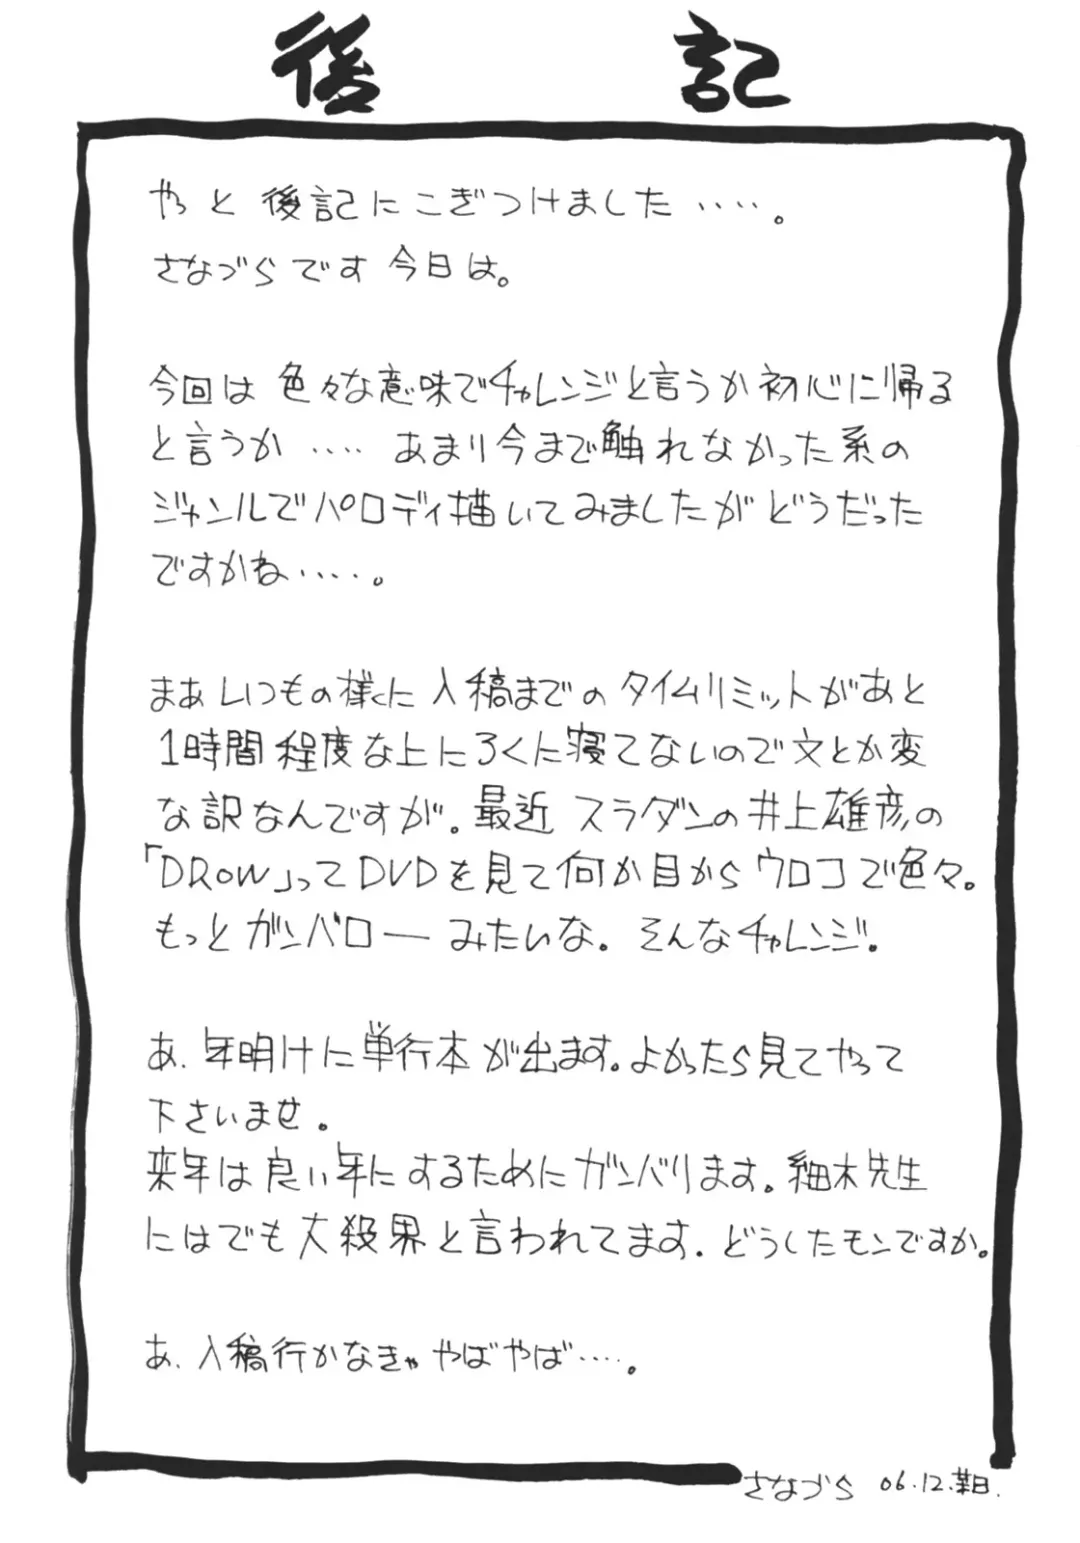 後記
やっと後記にこぎつけました‥‥。
さなづらです今日は。
今回は色々な意味でチャレンジと言うか初心に帰る
と言うか‥‥あまり今まで触れなかった系の
ジャンルでパロディ描いてみましたがどうだった
ですかね‥‥。
まあいつもの様に入稿までのタイムリミットがあと
1時間程度な上にろくに寝てないので文とか変
な訳なんですが。最近スラダンの井上雄彦の
「DROW」ってDVDを見て何か目からウロコで色々。
もっとガンバローみたいな。そんなチャレンジ。
あ.年明けに単行本が出ます。よかったら見てやって
下さいませ。
来年は良い年にするためにガンバります。細木先生
にはでも大殺界と言われてます.どうしたモンですか。
あ.入稿行かなきゃやばやば‥‥。
さなづら 06.12.某日.